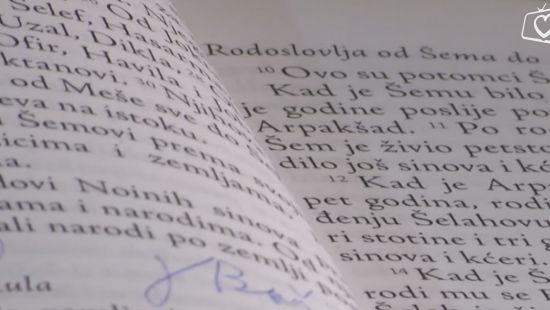 Šelef, Hasarm
Uzal, Dikla,
Ofir, Havila i J
ktanovi. 30 Njiho
od Meše sve do S
eva na istoku.
Šemovi prema sv
icima i zemljama,
a.
lovi Noinih sinova
ama i narodima. Od
ali narodi po zemlji
ula
Rodoslovlja od Šema do
10 Ovo su potomci Š
Kad je Šemu bilo
je godine poslije po
Arpakšad. 11 Po ro
Šem je živio petsto
dilo još sinova i kć
12 Kad je Arp
pet godina, rodi
đenju Šelahovu
ri stotine i tri g
sinova i kćeri.
14 Kad je Š
rodi mu se